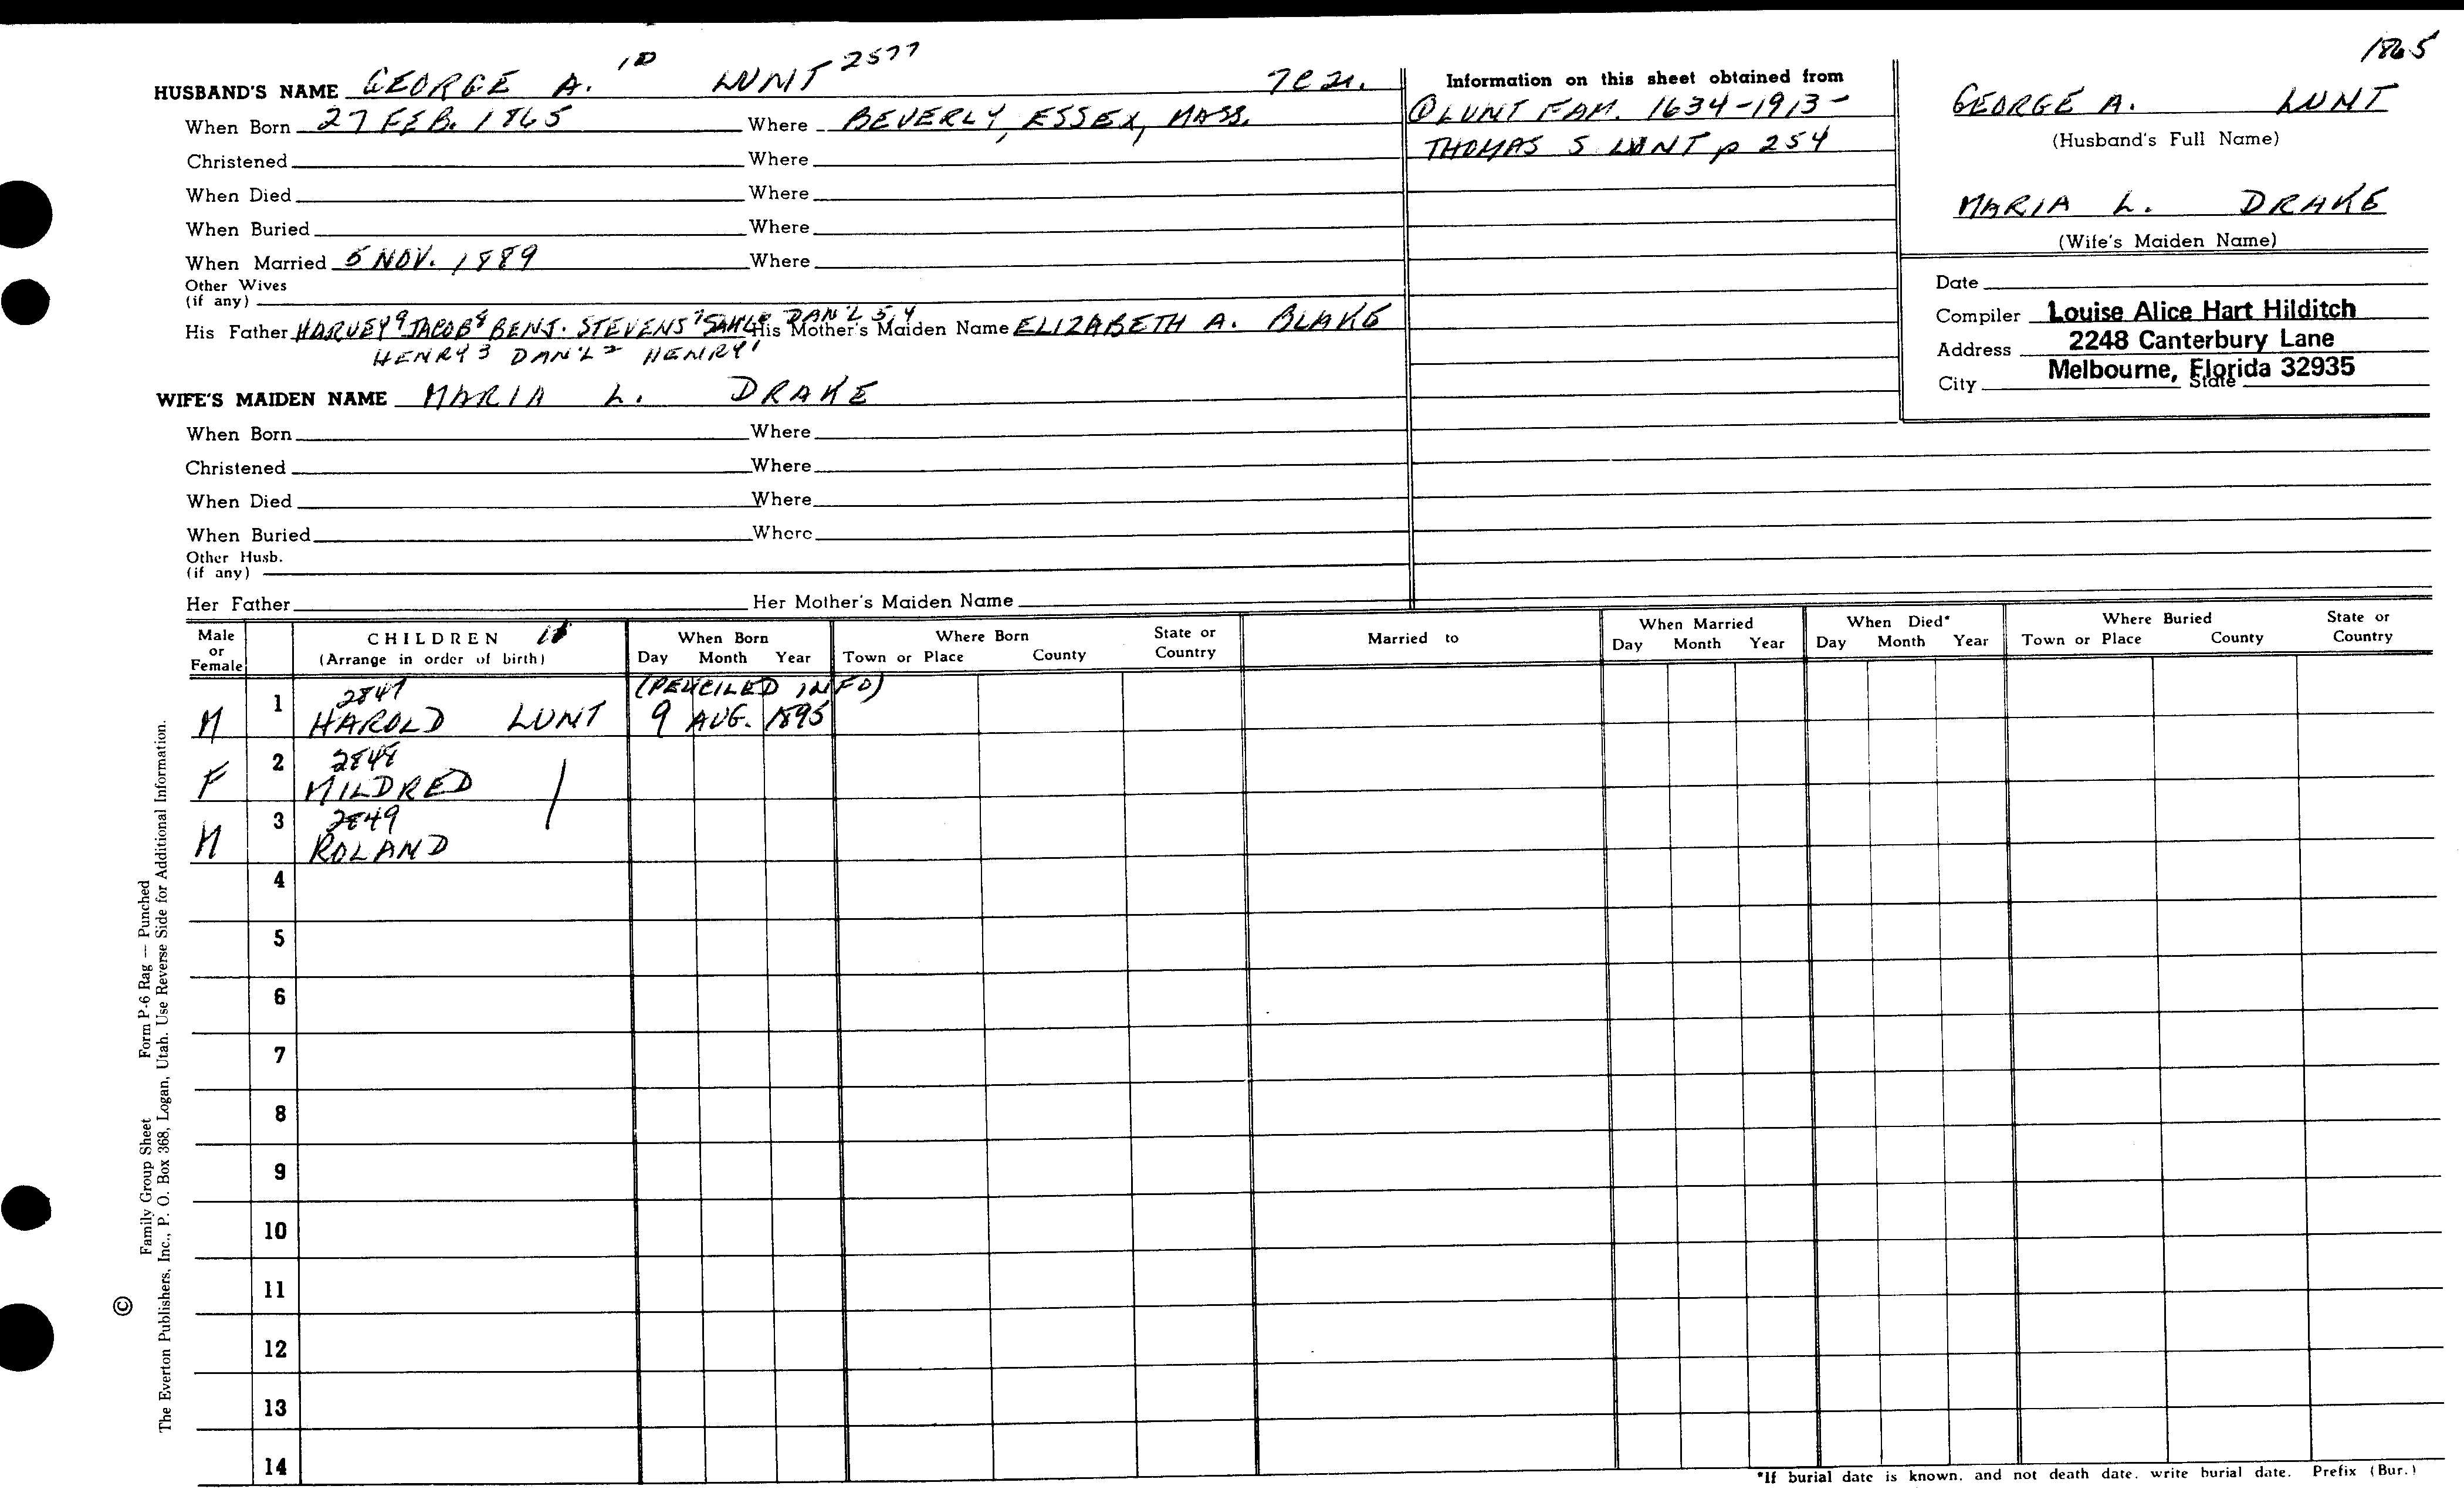 1865
HUSBAND'S NAME GEORGE A. 10 LUNT 2577
When Born 27 FEB. 1865 Where BEVERLY, ESSEX, MASS.
Christened Where
When Died Where
When Buried Where
When Married 5 NOV. 1889 Where
Other Wives
(if any)
His Father HARVEY 9 JACOB 8 BENJ. STEVENS 7 SAM'L 6 DAN'L 5, 4 His Mother's Maiden Name ELIZABETH A. BLAKE
HENRY 3 DAN'L 2 HENRY 1
WIFE'S MAIDEN NAME MARIA L. DRAKE
When Born Where
Christened Where
When Died Where
When Buried Where
Other Husb.
(if any)
Her Father Her Mother's Maiden Name
Information on this sheet obtained from
LUNT FAM. 1634-1913-
THOMAS S LUNT p 254
GEORGE A. LUNT
(Husband's Full Name)
MARIA L. DRAKE
(Wife's Maiden Name)
Date
Compiler Louise Alice Hart Hilditch
Address 2248 Canterbury Lane
City Melbourne, Florida 32935 State
Male or Female CHILDREN (Arrange in order of birth) When Born Day Month Year Where Born Town or Place County State or Country Married to When Married Day Month Year When Died* Day Month Year Where Buried Town or Place County State or Country
2847 (PENCILED INFO)
M 1 HAROLD LUNT 9 AUG. 1895
2848
F 2 MILDRED
2849
M 3 ROLAND
4
5
6
7
8
9
10
11
12
13
14
*If burial date is known, and not death date, write burial date. Prefix (Bur.)
© Family Group Sheet Form P-6 Rag — Punched
The Everton Publishers, Inc., P. O. Box 368, Logan, Utah. Use Reverse Side for Additional Information.